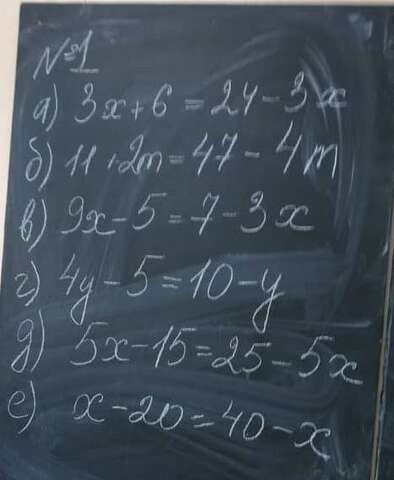 №1
а) 3x+6=24-3x
б) 11+2m=47-4m
в) 9x-5=7-3x
г) 4y-5=10-y
д) 5x-15=25-5x
е) x-20=40-x